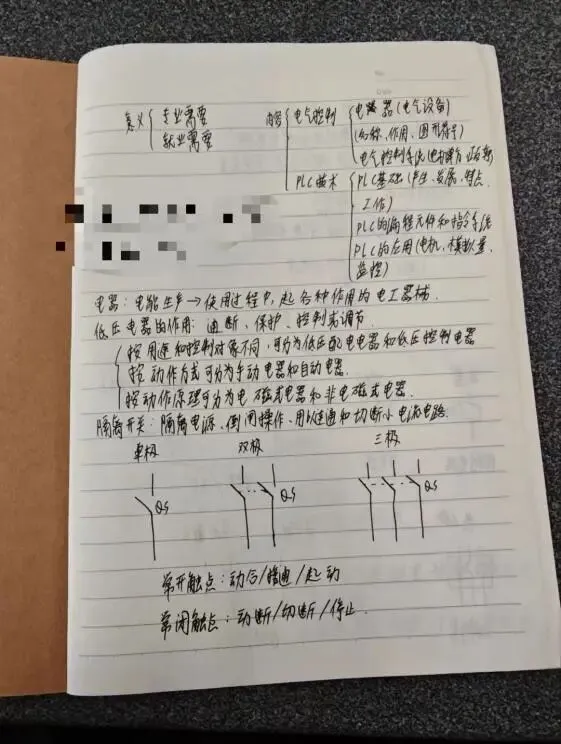 意义 专业需要
就业需要
内容 电气控制 电器(电气设备)
(名称、作用、图形符号)
电气控制系统
PLC技术 PLC基础(产生、发展、特点、
工作)
PLC的编程元件和指令系统
PLC的应用(电机、模拟量、
监控)
电器:电能生产→使用过程中,起各种作用的电工器械.
低压电器的作用:通断、保护、控制或调节.
按用途和控制对象不同,可分为低压配电电器和低压控制电器
按动作方式可分为手动电器和自动电器.
按动作原理可分为电磁式电器和非电磁式电器.
隔离开关:隔离电源、倒闸操作、用以连通和切断小电流电路.
单极 双极 三极
QS QS QS
常开触点:动合/接通/起动
常闭触点:动断/切断/停止.